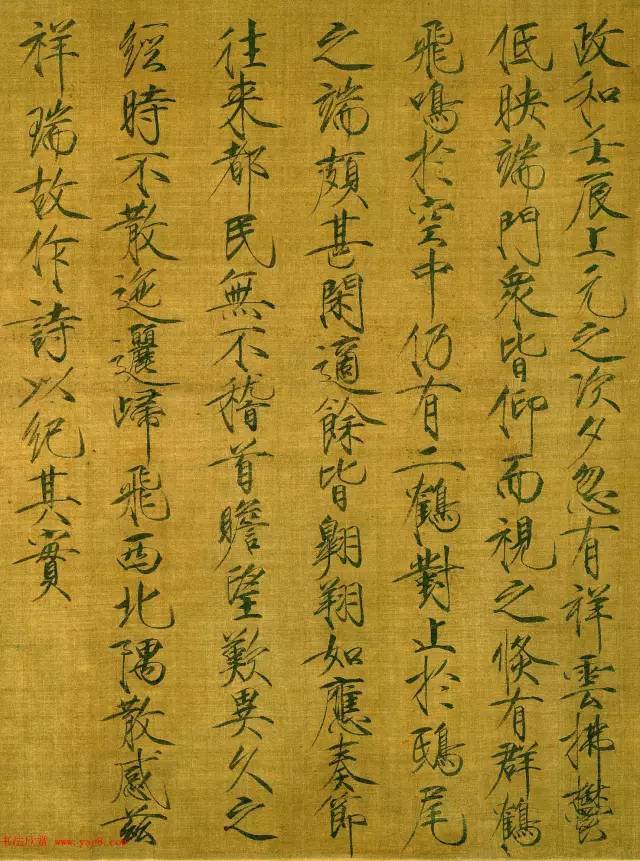 政和壬辰上元之次夕忽有祥雲拂鬱
低映端門衆皆仰而視之倐有群鶴
飛鳴於空中仍有二鶴對止於鴟尾
之端頗甚閑適餘皆翱翔如應奏節
往来都民無不稽首瞻望歎異久之
經時不散迤邐歸飛西北隅散感茲
祥瑞故作詩以紀其實
书法欣赏 www.yac8.com